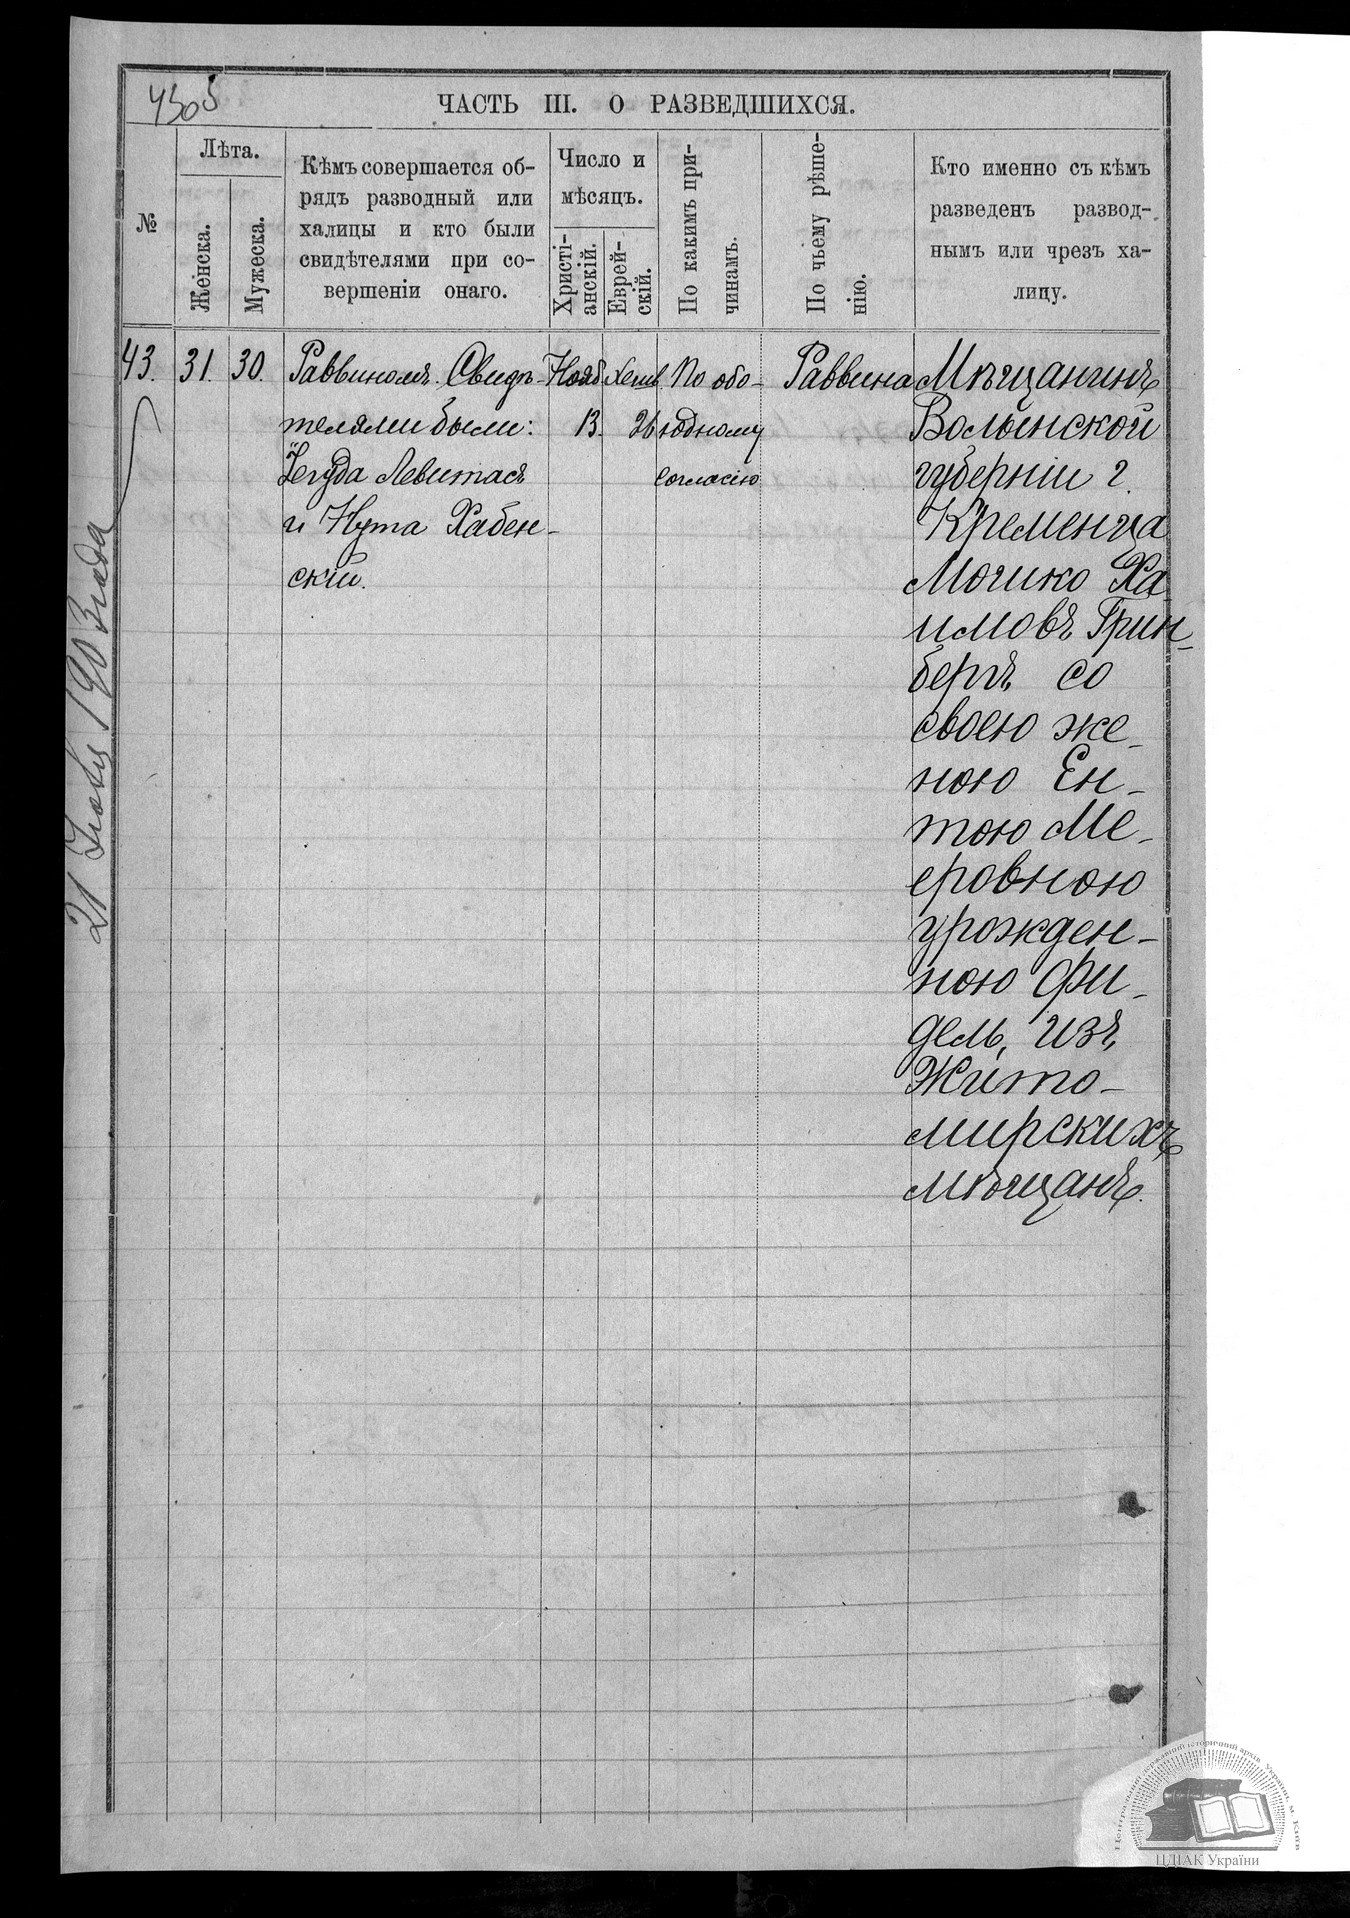 4505
ЧАСТЬ III. О РАЗВЕДШИХСЯ.
№
Лѣта.
Женска.
Мужеска.
Кѣмъ совершается об-
рядъ разводный или
халицы и кто были
свидѣтелями при со-
вершеніи онаго.
Число и
мѣсяцъ.
Христі-
анскій.
Еврей-
скій.
По какимъ при-
чинамъ.
По чьему рѣше-
нію.
Кто именно съ кѣмъ
разведенъ развод-
нымъ или чрезъ ха-
лицу.
43.
31.
30.
Раввиномъ. Свидѣ-
телями были:
Іегуда Левитасъ
и Нута Хабен-
скій.
Нояб
13.
Хешв
26
По обо-
юдному
согласію
Раввина
Мѣщанинъ
Волынской
губерніи г.
Кременца
Мошко Ха-
имовъ Грин-
бергъ со
своею же-
ною Ен-
тою Ме-
еровною
урожден-
ною Фи-
дель, изъ
Жито-
мирскихъ
мѣщанъ.
21 1903 года
Центральний державний історичний архів України, м. Київ
ЦДІАК України